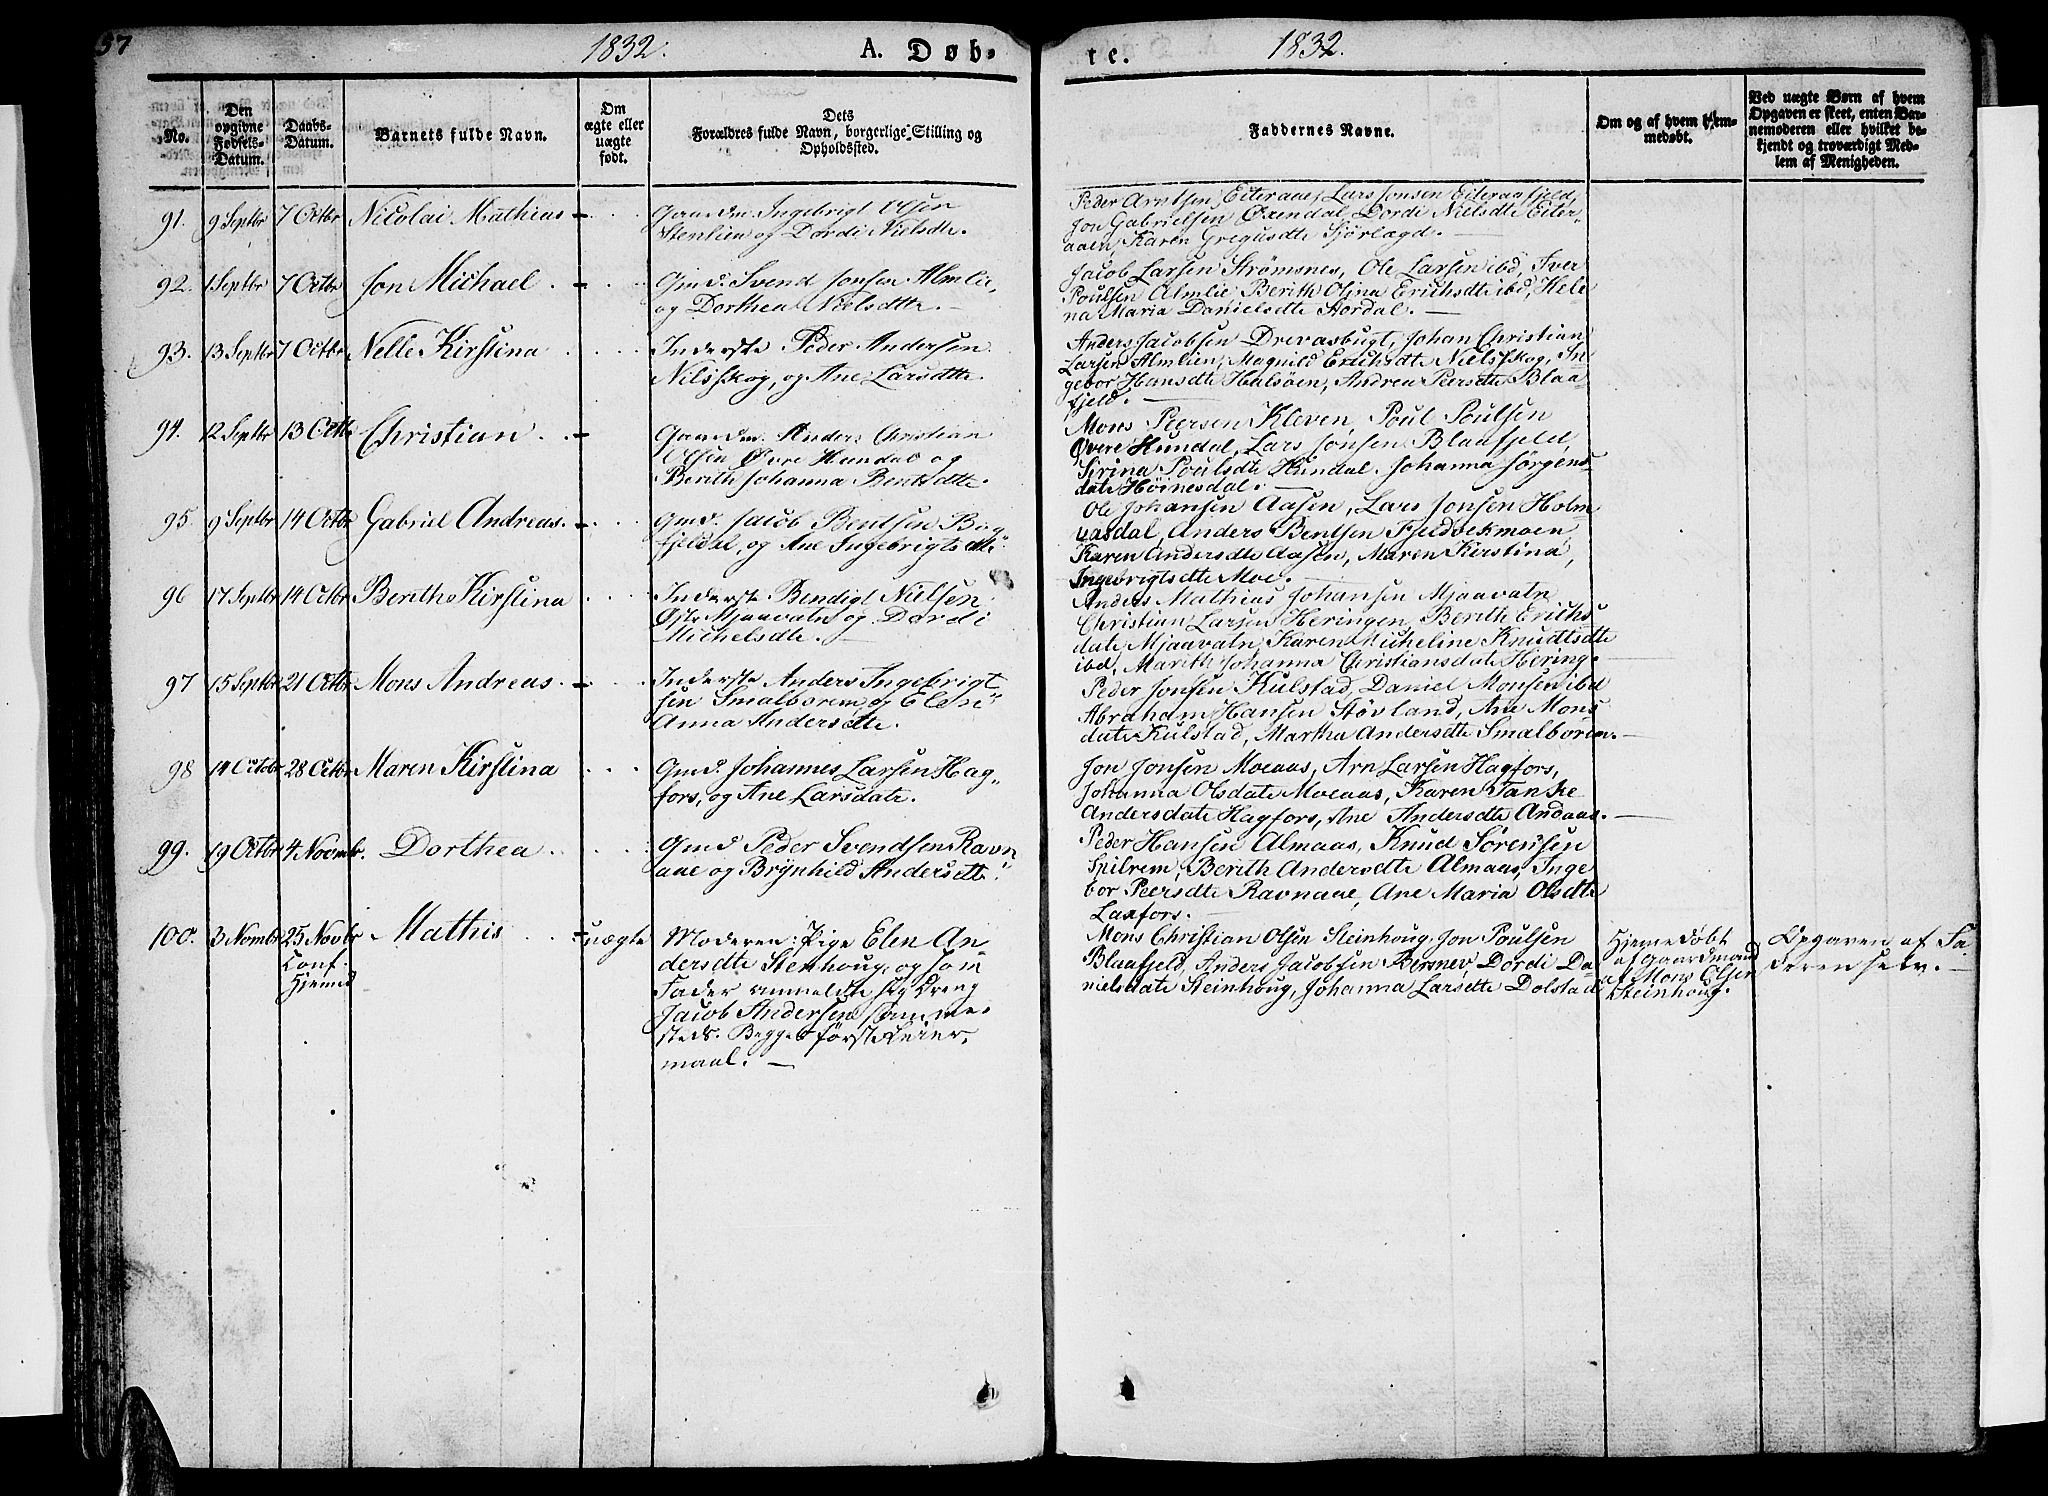 37
1832.
A. Døb-
te.
1832.
No.
Den
opgivne
Fødsels-
Datum.
Daabs-
Datum.
Barnets fulde Navn.
Om
ægte eller
uægte
født.
Dets
Forældres fulde Navn, borgerlige Stilling og
Opholdssted.
Faddernes Navne.
Om og af hvem hjem-
medøbt.
Ved uægte Børn af hvem
Opgaven er skeet, enten Bar-
nemoderen eller hvilket be-
kjendt og troværdigt Med-
lem af Menigheden.
91. 9 Septbr 7 Octbr Nicolai Mathias
Gaardm. Ingebrigt Olsen
Stenlien og Dordi Nielsdtr.
Peder Arntsen Eiteraae, Lars Jonsen Eiteraafjeld,
Jon Gabrielsen Øxendal, Dordi Nielsdtr Eiter-
aaen, Karen Gregusdtr Sjørlægd.
92. 1 Septbr 7 Octbr Jon Michael
Gmd. Svend Jonsen Almlie,
og Dorthea Nielsdtr.
Jacob Larsen Strømsnes, Ole Larsen ibd, Iver
Poulsen Almlie, Berith Olina Erichsdtr ibd, Hele
na Maria Danielsdtr Stordal.
93. 13 Septbr 7 Octbr Nelle Kirstina
Inderste Peder Andersen
Nilsskog, og Ane Larsdtr.
Anders Jacobsen Drevasbugt, Johan Christian
Larsen Almlien, Magnild Erichsdtr Nielsskog, In-
gebor Hansdtr Hulsøen, Andrea Peersdtr Blaa-
fjeld.
94. 12 Septbr 13 Octbr Christian
Gaardm. Anders Christian
Olsen Øvre Hundal og
Berith Johanna Bentsdtr.
Mons Peersen Kleven, Poul Poulsen
Øvere Hundal, Lars Jonsen Blaafjeld,
Sirina Poulsdtr Hundal, Johanna Jørgens-
datr Høinesdal.
95. 9 Septbr 14 Octbr Gabriel Andreas.
Gmd. Jacob Bentsen Bag-
fjeldal, og Ane Ingebrigtsdtr
Ole Johansen Aasen, Lars Jonsen Holm
vasdal, Anders Bentsen Fjeldbekmoen
Karen Andersdtr Aasen, Maren Kirstina,
Ingebrigtsdtr Moe.
96 17 Septbr 14 Octbr Berith Kirstina
Inderst Bendigt Nielsen
Øst. Mjaavatn og Dordi
Michelsdtr.
Anders Mathias Johansen Mjaavatn
Christian Larsen Heringen, Berith Erichs-
datr Mjaavatn, Karen Micheline Knudtsdtr
ibd, Marith Johanna Christiansdatr Hering.
97 15 Septbr 21 Octbr Mons Andreas
Inderste Anders Ingebrigt
sen Smalborem, og Elen
Anna Andersdtr.
Peder Jonsen Kulstad, Daniel Monsen ibd
Abraham Hansen Støvland, Ane Mons-
datr Kulstad, Martha Andersdtr Smalboren.
98 14 Octobr 28 Octbr Maren Kirstina
Gmd. Johannes Larsen Hag-
fors, og Ane Larsdatr.
Jon Jonsen Moeaas, Arn Larsen Hagfors,
Johanna Olsdatr Moeaas, Karen Tanke
Andersdatr Hagfors, Ane Andersdtr Andaas.
99. 19 Octbr 4 Novmbr. Dorthea
Gmd Peder Svendsen Ravn
aae og Brynhild Andersdtr
Peder Hansen Almaas, Knud Sørensen
Spilrem, Berith Andersdtr Almaas, Inge
bor Peersdtr Ravnaae, Ane Maria Olsdtr
Laxfors.
100. 3 Nombr 25 Novbr Mathis uægte
Conf.
Hjemed
Moderen: Pige Elen An-
dersdtr Stenhoug, og som
Fader anmeldte sig Dreng
Jacob Andersen samme-
steds. Begges første Leier-
maal.
Mons Christian Olsen Steinhoug, Jon Poulsen
Blaafjeld, Anders Jacobsen Remnev, Dordi Da-
nielsdatr Steinhoug, Johanna Larsdtr Dolstad
Hjemedøbt
af Gaardmand
af Mons Olsen
Steinhoug.
Opgaven af Fa
deren selv.